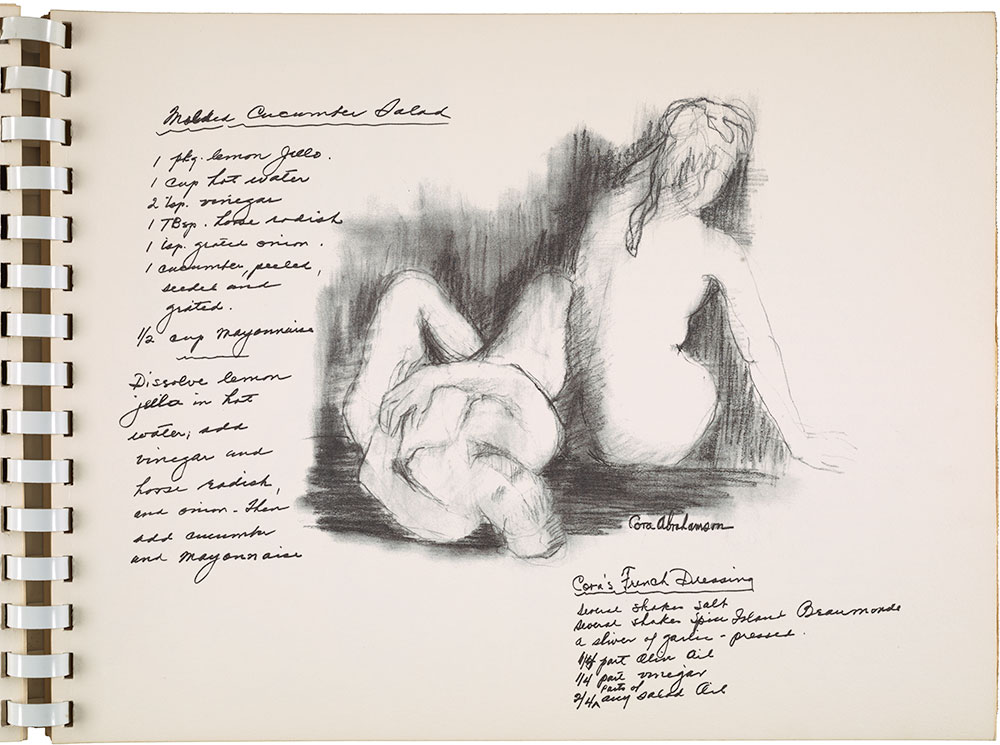 Molded Cucumber Salad
1 pkg. lemon Jello.
1 cup hot water
2 tsp. vinegar
1 TBsp. horse radish
1 tsp. grated onion.
1 cucumber, peeled,
seeded and
grated.
1/2 cup Mayonnaise
Dissolve lemon
jello in hot
water; add
vinegar and
horse radish,
and onion - Then
add cucumber
and Mayonnaise
Cora Abrahamson
Cora's French Dressing
Several shakes salt
Several shakes Spice Island Beaumonde
a sliver of garlic - pressed.
1/4 part Olive Oil
1/4 part vinegar
2/4 parts of any salad Oil